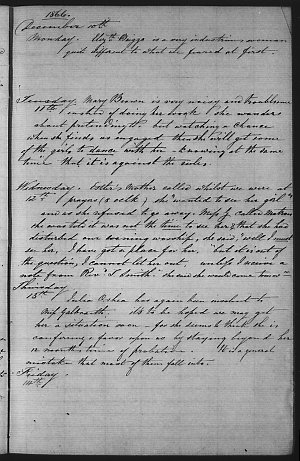 1866.
December 10th
Monday. Elizth Buzza is a very industrious woman
quite different to what we feared at first.
Tuesday. Mary Brown is very noisy and troublesome
11th instead of doing her work she wanders
about pretending, but watching a chance
when she finds us engaged then she will get some
of the girls to dance with her knowing at the same
time that it is against the rules.
Wednesday. Mother called whilst we were at
12th prayers (8 oclk) she wanted to see her girl
and as she refused to go away. Miss
she was told it was not the time to see her & that she had
disturbed our evening worship, she said, well I must
see her I have got a place for her, but it is out of
the question, I cannot let her out, unless I receive a
note from Revd Smith she said she would come tomorrow
Thursday
13th Julia has again been insolent to
Miss Galbraith, it is to be hoped we may get
her a situation soon – for she seems to think she is
conferring a favor upon us by staying beyond her
12 months time of probation. It is a general
mistake that most of them fall into.
Friday.
14th.